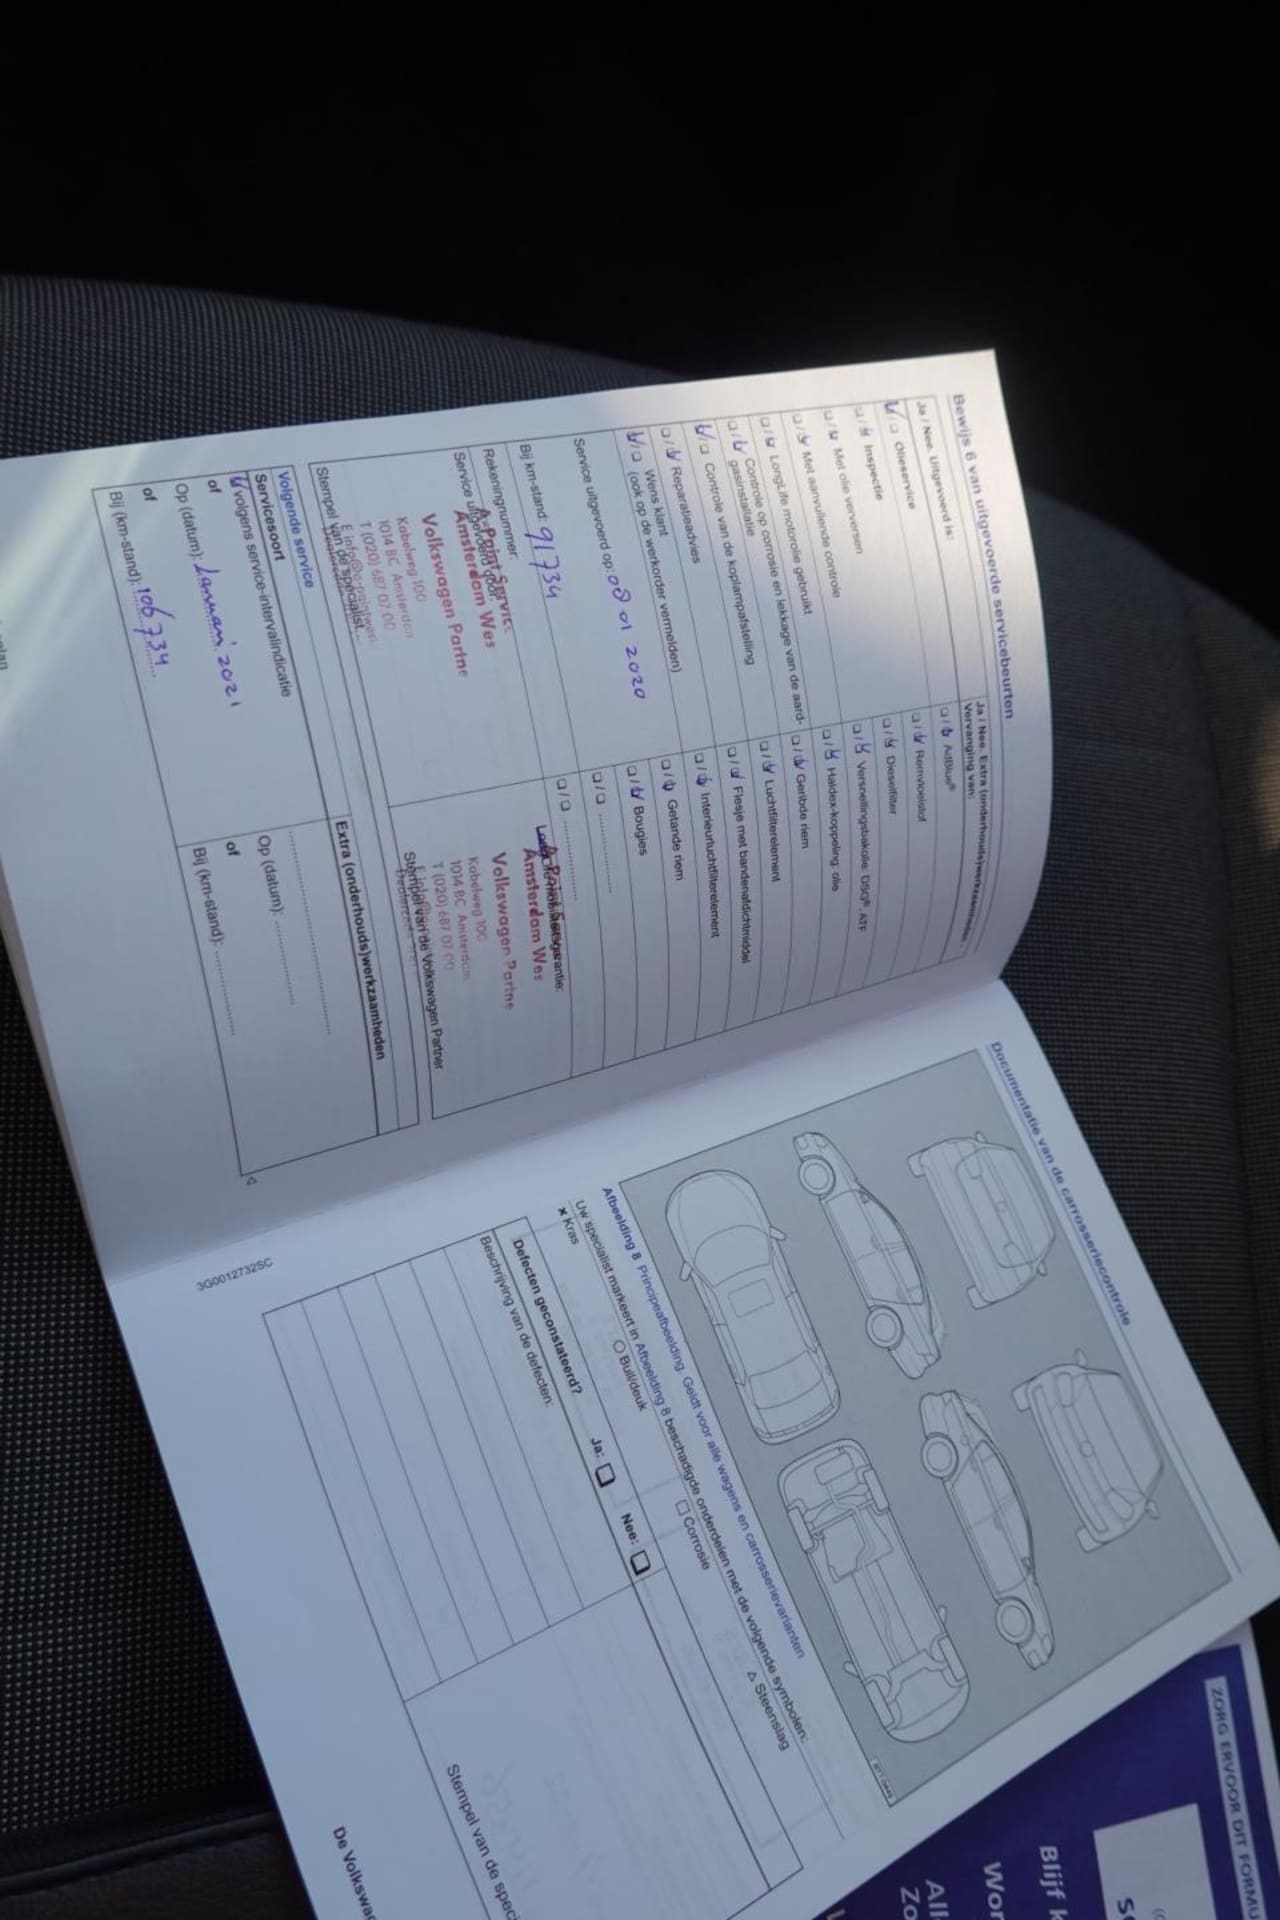 Bewijs 6 van uitgevoerde servicebeurten
Ja / Nee. Uitgevoerd is:
Olieservice
Inspectie
Met olie verversen
Met aanvullende controle
LongLife motorolie gebruikt
Controle op corrosie en lekkage van de aard-
gasinstallatie
Controle van de koplampafstelling
Reparatieadvies
Wens klant
(ook op de werkorder vermelden)
Service uitgevoerd op: 08 01 2020
Bij km-stand: 91734
Rekeningnummer:
Service uitgevoerd door:
A-Point Service
Amsterdam Wes
Volkswagen Partne
Kabelweg 100
1014 BC Amsterdam
T (020) 687 07 00
Stempel van de specialist
Ja / Nee. Extra (onderhouds)werkzaamheden -
Vervanging van:
AdBlue®
Remvloeistof
Dieselfilter
Versnellingsbakolie: DSG®, ATF
Haldex-koppeling: olie
Geribde riem
Luchtfilterelement
Flesje met bandenafdichtmiddel
Interieurluchtfilterelement
Getande riem
Bougies
A-Point Service
Amsterdam Wes
Volkswagen Partne
Kabelweg 100
1014 BC Amsterdam
T (020) 687 07 00
Stempel van de Volkswagen Partner
Volgende service
Servicesoort
volgens service-intervalindicatie
of
Op (datum): Januari 2021
of
Bij (km-stand): 106734
Extra (onderhouds)werkzaamheden
Op (datum):
of
Bij (km-stand):
Documentatie van de carrosseriecontrole
Afbeelding 8 Principeafbeelding: Geldt voor alle wagens en carrosserievarianten
Uw specialist markeert in Afbeelding 8 beschadigde onderdelen met de volgende symbolen:
× Kras
○ Buil/deuk
□ Corrosie
△ Steenslag
Defecten geconstateerd?
Ja:
Nee:
Beschrijving van de defecten:
Stempel van de speci
3G0012732SC
De Volkswag
ZORG ERVOOR DIT FORMU
Blijf k
Wor
All
Zo